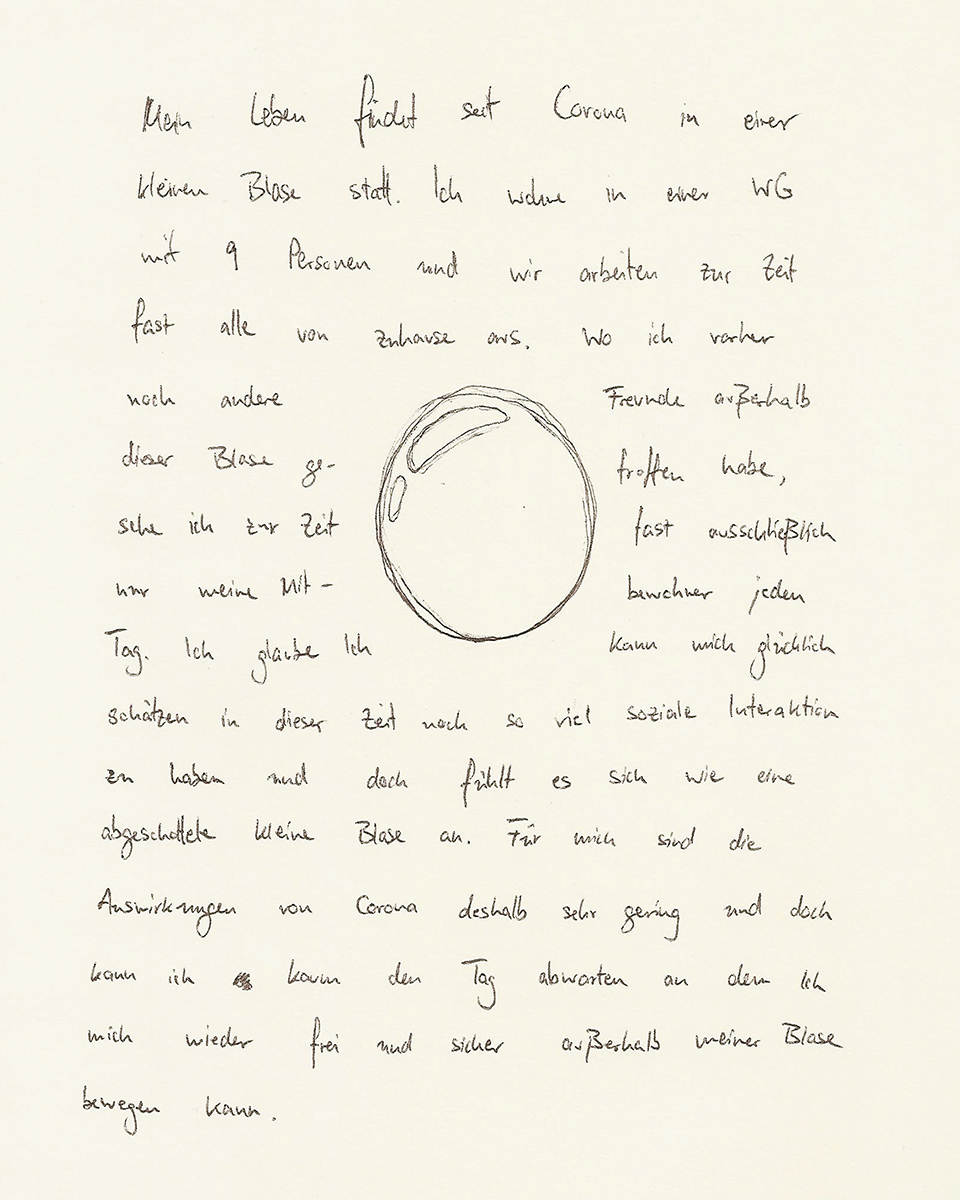 Mein Leben findet seit Corona in einer
kleinen Blase statt. Ich wohne in einer WG
mit 9 Personen und wir arbeiten zur Zeit
fast alle von zuhause aus. Wo ich vorher
noch andere Freunde außerhalb
dieser Blase ge- troffen habe,
sehe ich zur Zeit fast ausschließlich
nur meine Mit- bewohner jeden
Tag. Ich glaube Ich kann mich glücklich
schätzen in dieser Zeit noch so viel soziale Interaktion
zu haben und doch fühlt es sich wie eine
abgeschottete kleine Blase an. Für mich sind die
Auswirkungen von Corona deshalb sehr gering und doch
kann ich kaum den Tag abwarten an dem Ich
mich wieder frei und sicher außerhalb meiner Blase
bewegen kann.